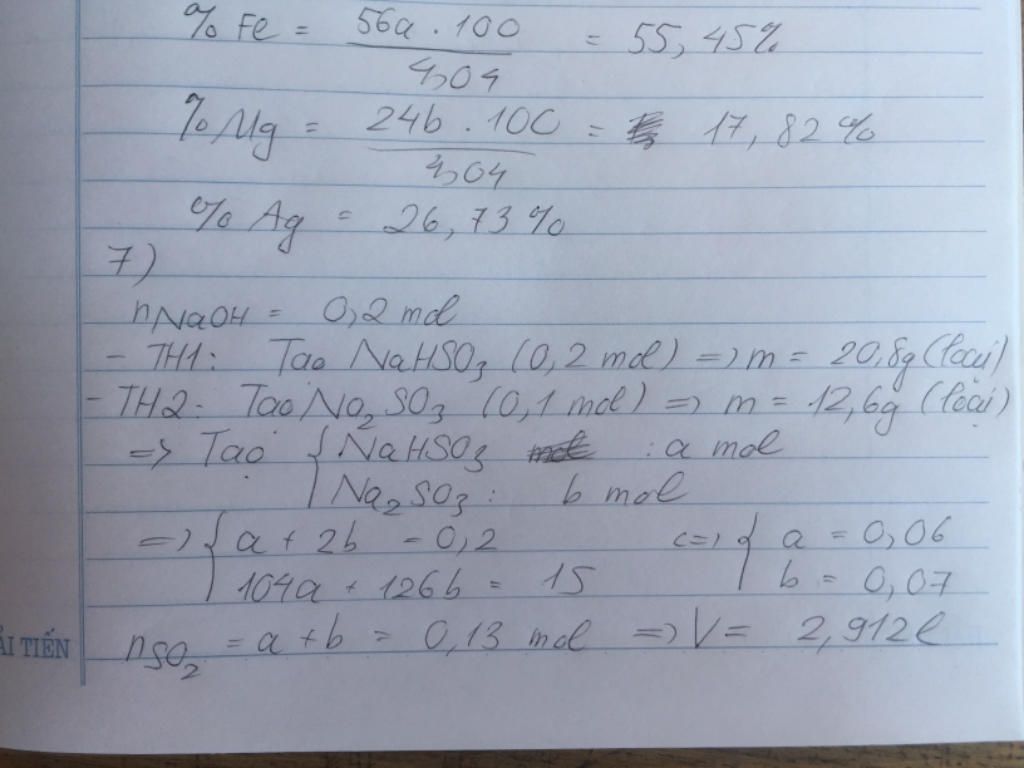 % Fe = 56a . 100 / 4,04 = 55,45%
% Mg = 24b . 100 / 4,04 = 17,82%
% Ag = 26,73%
7)
nNaOH = 0,2 mol
- TH1: Tạo NaHSO3 (0,2 mol) => m = 20,8g (loại)
- TH2: Tạo Na2SO3 (0,1 mol) => m = 12,6g (loại)
=> Tạo { NaHSO3 : a mol
Na2SO3 : b mol
=> { a + 2b = 0,2 <=> { a = 0,06
104a + 126b = 15 b = 0,07
nSO2 = a + b = 0,13 mol => V = 2,912l
ẢI TIẾN